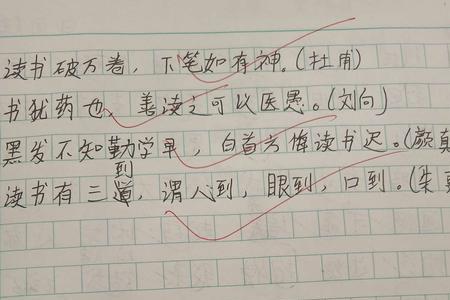 读书破万卷，下笔如有神。(杜甫)
书犹药也，善读之可以医愚。(刘向)
黑发不知勤学早，白首方悔读书迟。(颜真
到
读书有三道，谓心到，眼到，口到。(朱